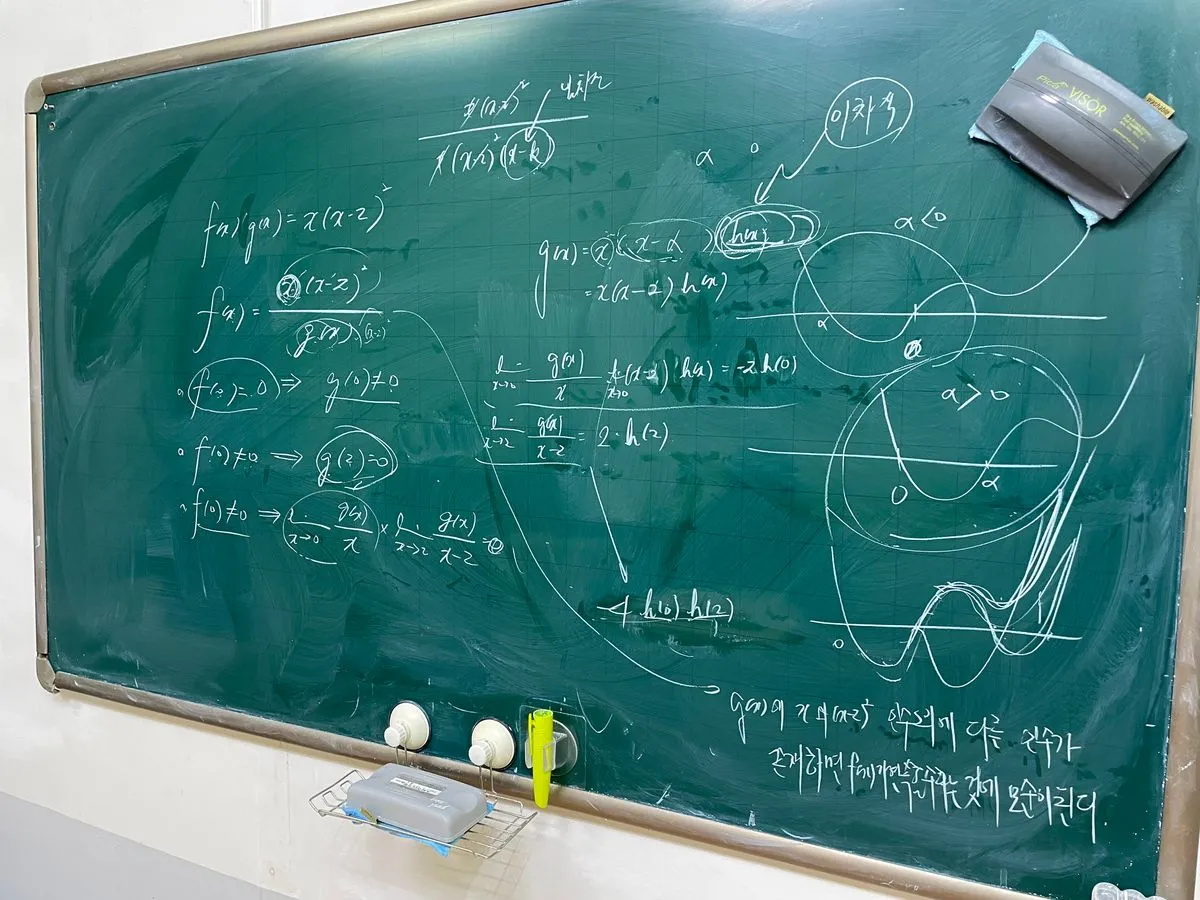 x(x-2)²
x(x-2)²(x-k)
이차식
α 0
f(x)g(x)=x(x-2)²
f(x)= x(x-2)² / g(x)
f(2)=0 ⇒ g(0)≠0
f(0)≠0 ⇒ g(2)=0
f(0)≠0 ⇒ lim x→0 g(x)/x × lim x→2 g(x)/x-2 = 0
g(x)=x(x-α)h(x)
=x(x-2)h(x)
lim x→0 g(x)/x lim x→0 (x-2)h(x)=-2h(0)
lim x→2 g(x)/x-2 = 2·h(2)
-4h(0)h(2)
α<0
α
α>0
0 α
0
g(x)에 x와 (x-2)² 인수외에 다른 인수가
존재하면 f(x)가 연속함수라는 것에 모순이 된다.
PICO VISOR